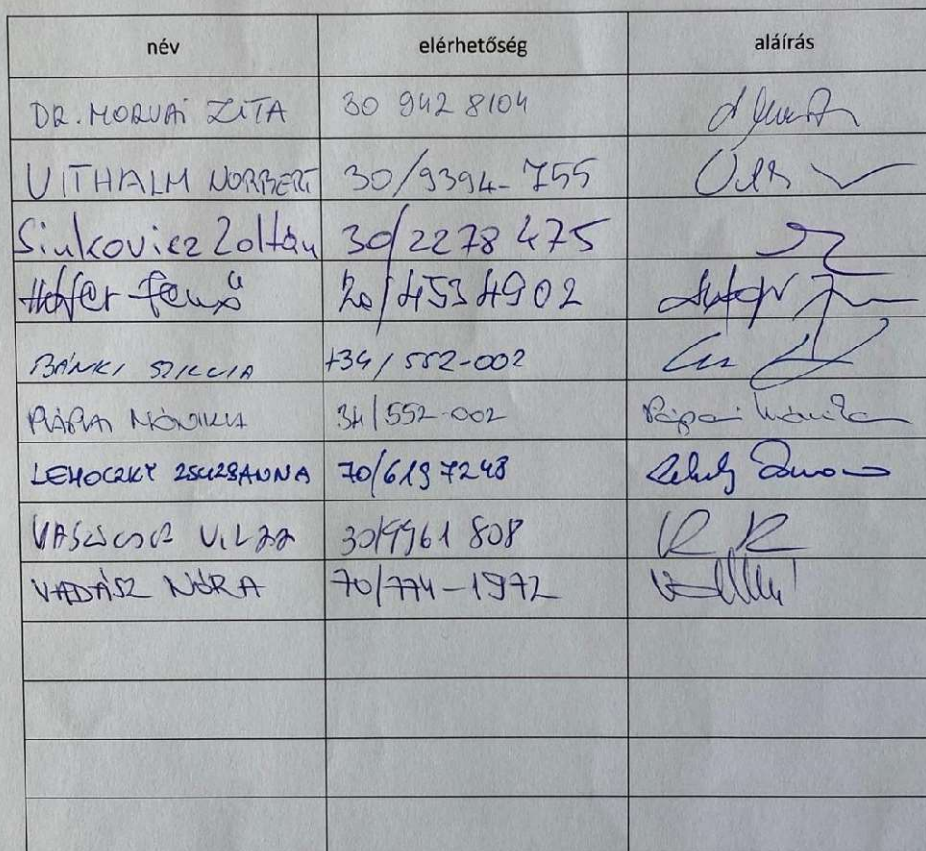 név elérhetőség aláírás
DR. MORVAI ZITA 30 942 8104
VITHALM NORBERT 30/9394-755
Sinkovicz Zoltán 30/2278475
Hofer Jenő 20/4534902
BÁNKI SZILVIA +34/552-002
PÁPAI MÓNIKA 34/552-002 Pápai Mónika
LEHOCZKY ZSUZSANNA 70/6197248
30/9961 808
VADÁSZ NÓRA 70/774-1972